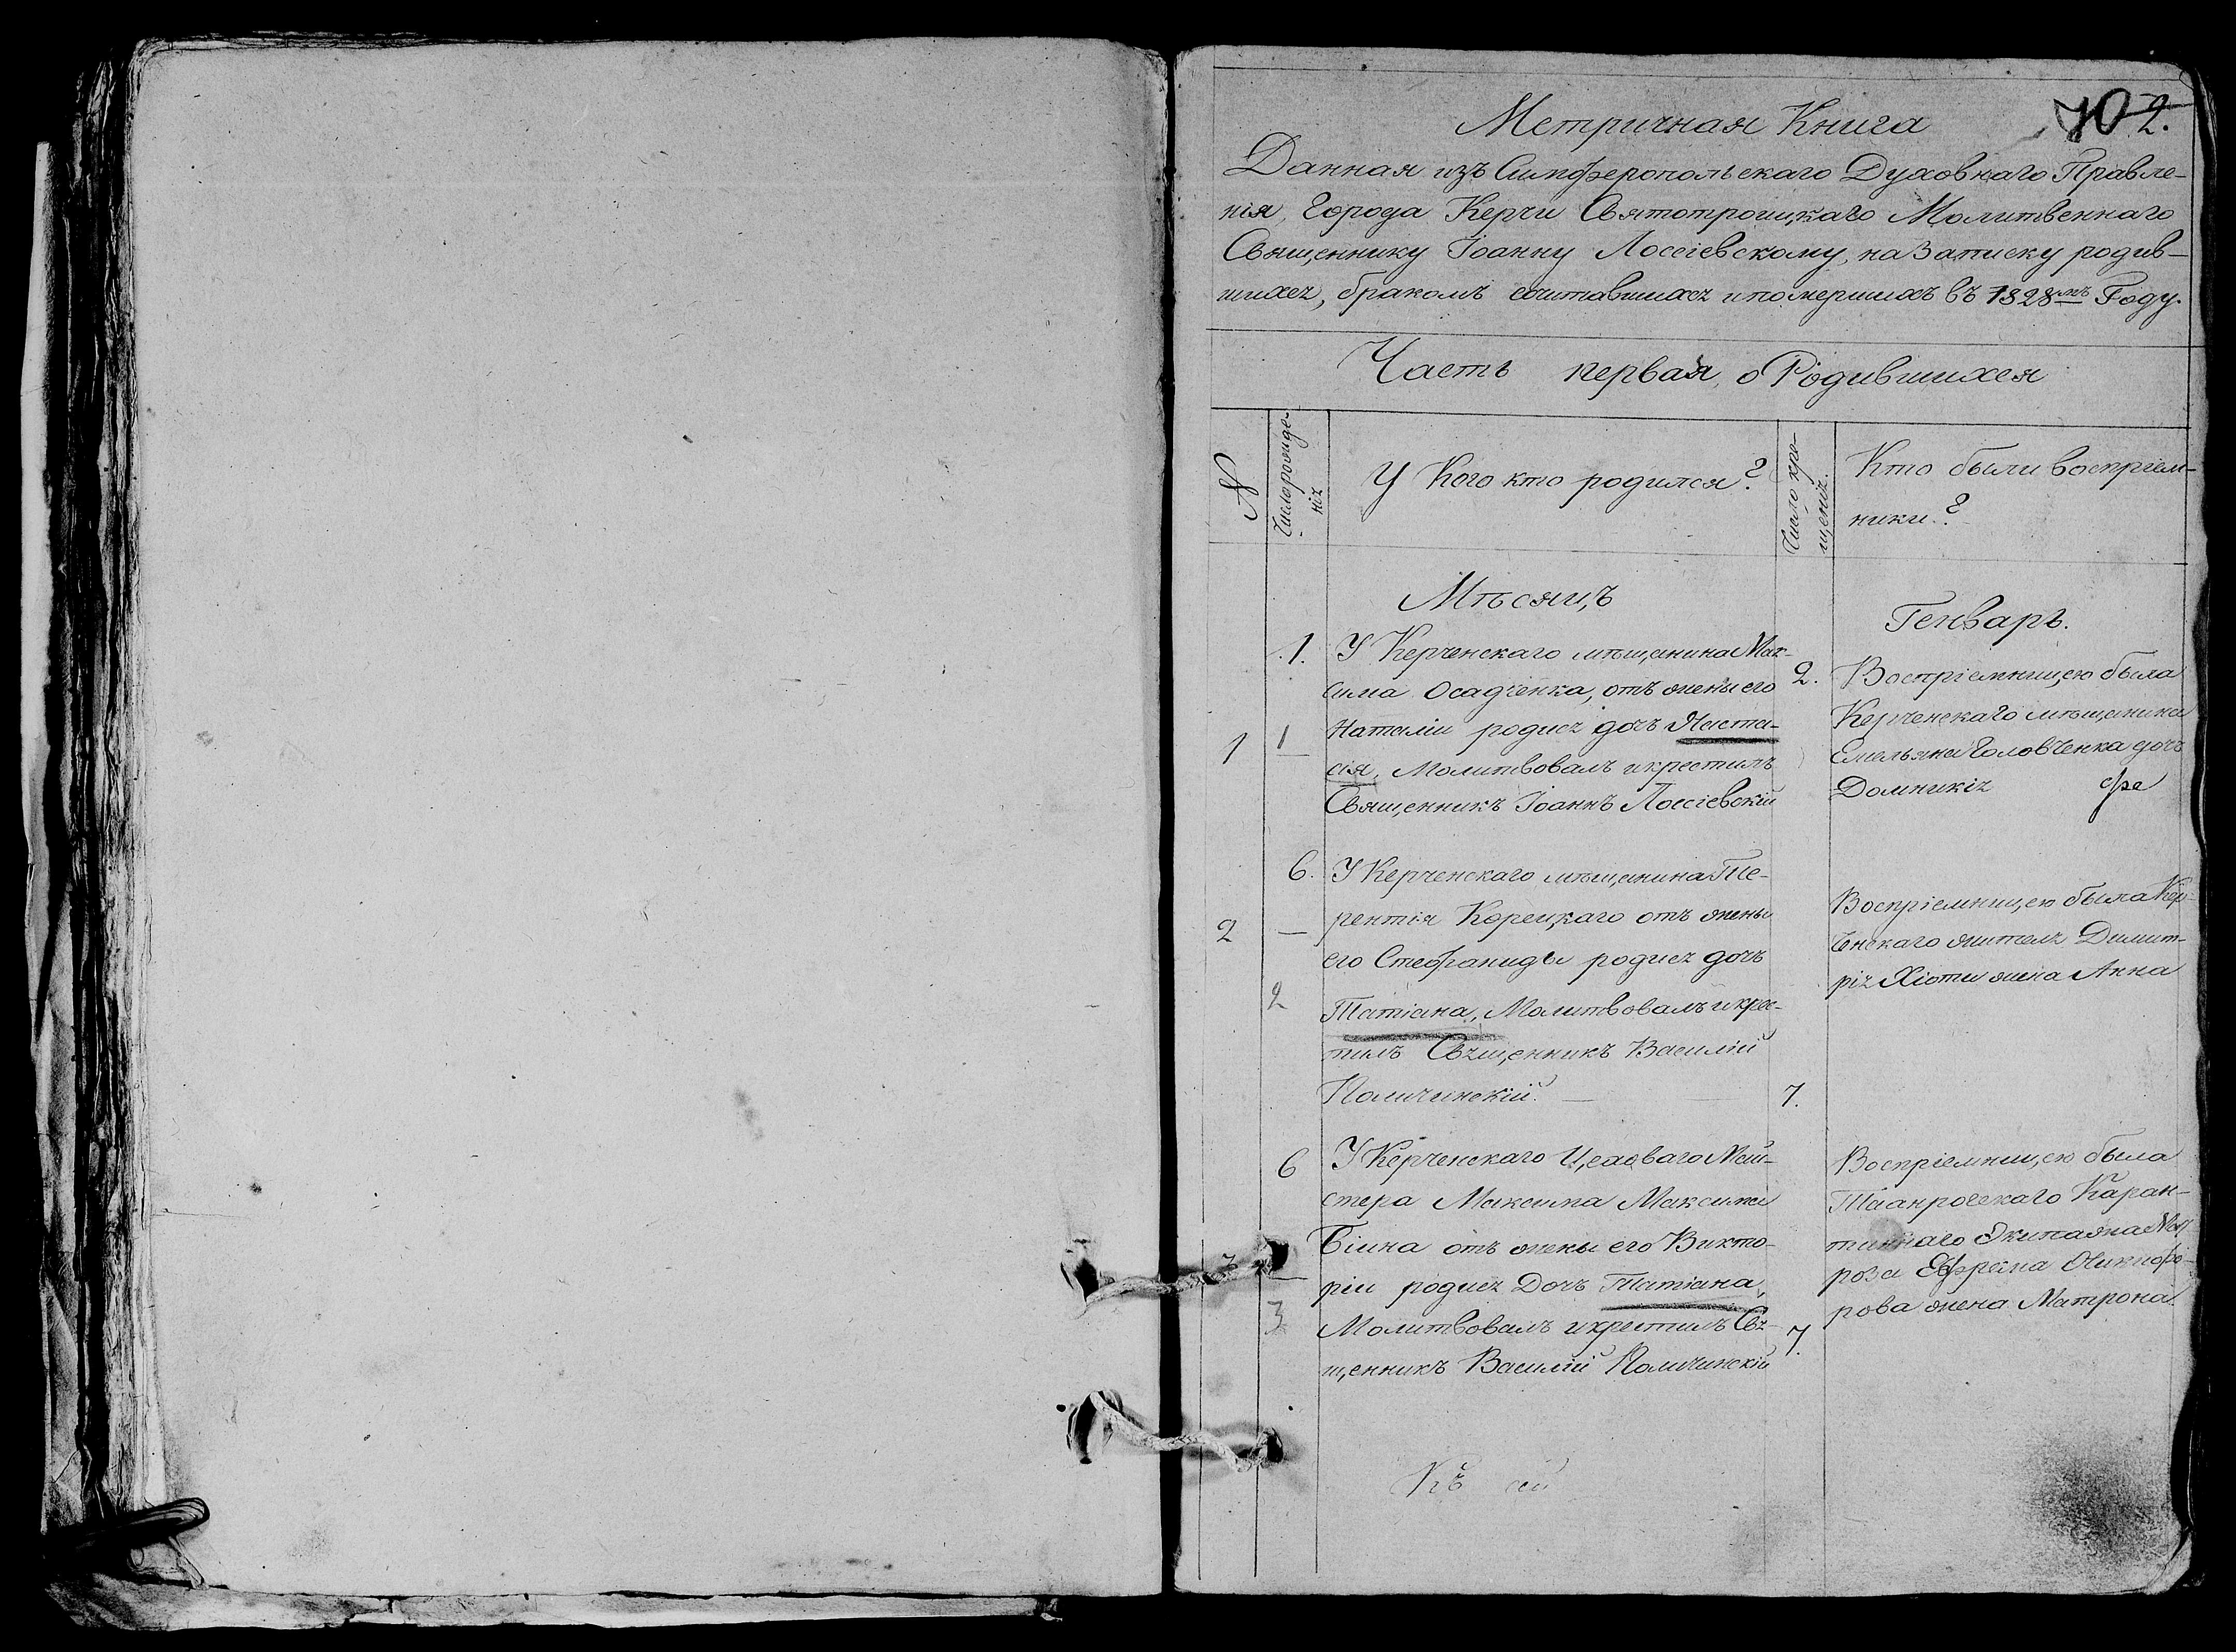 Метричная Книга
702.
Данная изъ Симферопольскаго Духовнаго Правле-
нія, Города Керчи Святотроицкаго Молитвеннаго
Священнику Іоанну Лоссіевскому, на Записку родив-
шихся, бракомъ сочитавшихся и помершихъ въ 1828мъ Году.
Часть первая, о Родившихся
№
Число рожде-
нія
У Кого кто родился?
Число кре-
щенія.
Кто были воспріем-
ники?
Мѣсяцъ
Генварь.
1.
У Керченскаго мѣщанина Мак-
сима Осадченка, отъ жены его
Наталіи родися дочь Анаста-
сія, Молитвовалъ и крестилъ
Священникъ Іоаннъ Лоссіевскій
1
1
2.
Воспріемницею была
Керченскаго мѣщанина
Емельяна Головченка дочь
Домникія
6.
У Керченскаго мѣщанина Те-
рентія Корецкаго отъ жены
его Стефаниды родися дочь
Татіана, Молитвовалъ и крес-
тилъ Священникъ Василій
Паличинскій.
2
2
7.
Воспріемницею была Кер-
ченскаго жителя Димит-
рія Хіоти жена Анна
6
У Керченскаго Цеховаго Мей-
стера Максима Максима
отъ жены его Викто-
ріи родися Дочь Татіана,
Молитвовалъ и крестилъ Свя-
щенникъ Василій Паличинскій
3
3
7.
Воспріемницею была
Таганрогскаго Каран-
тиннаго Экипажа Мат-
роза Ефрема Никифо-
рова жена Матрона.
Къ сей